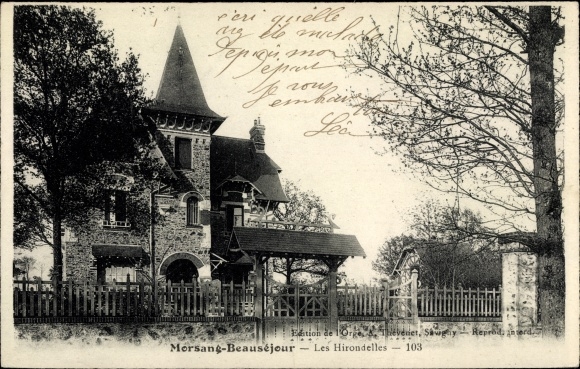 c'eri qu'elle
va de mal
depuis mon
depart
Je vous
embrasse
Léo
Edition de l'Orge, E. Thévenet, Savigny — Reprod. interd.
Morsang-Beauséjour — Les Hirondelles — 103